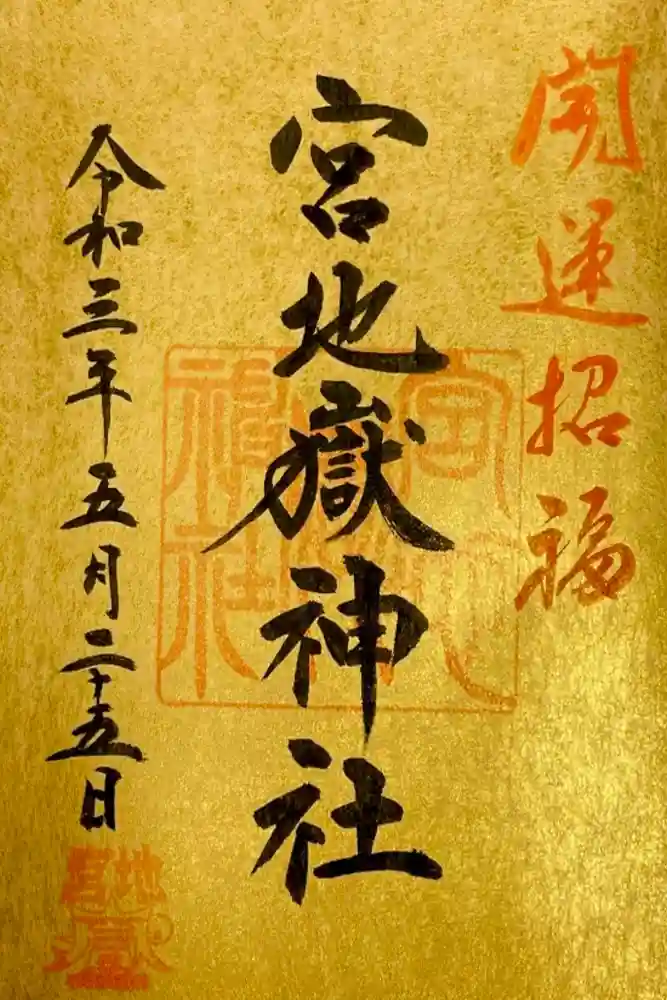 開運招福
宮地嶽神社
令和三年五月二十五日
宮地嶽